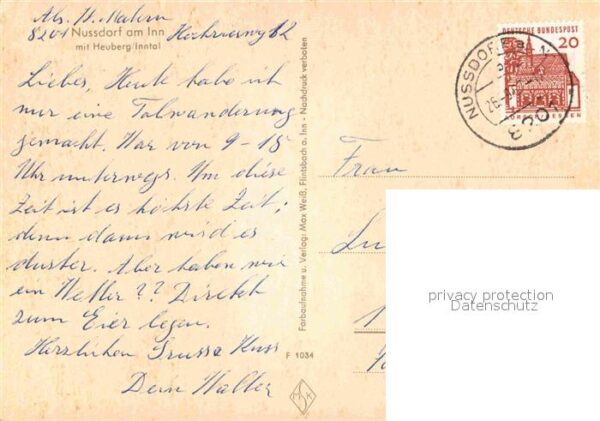 Abs. H. Matern
8201 Nussdorf am Inn
mit Heuberg/Inntal
Liebes, Heute habe ich
nur eine Talwanderung
gemacht. War von 9-15
Uhr unterwegs. Um diese
Zeit ist es höchste Zeit;
denn dann wird es
duster. Aber haben wir
ein Wetter?? Direkt
zum Eier legen.
Herzlichen Grusse Kuss
Dein Walter
Farbaufnahme u. Verlag: Max Weiß, Flintsbach a. Inn - Nachdruck verboten
F 1034
Frau
DEUTSCHE BUNDESPOST
20
NUSSDORF
8201
privacy protection
Datenschutz